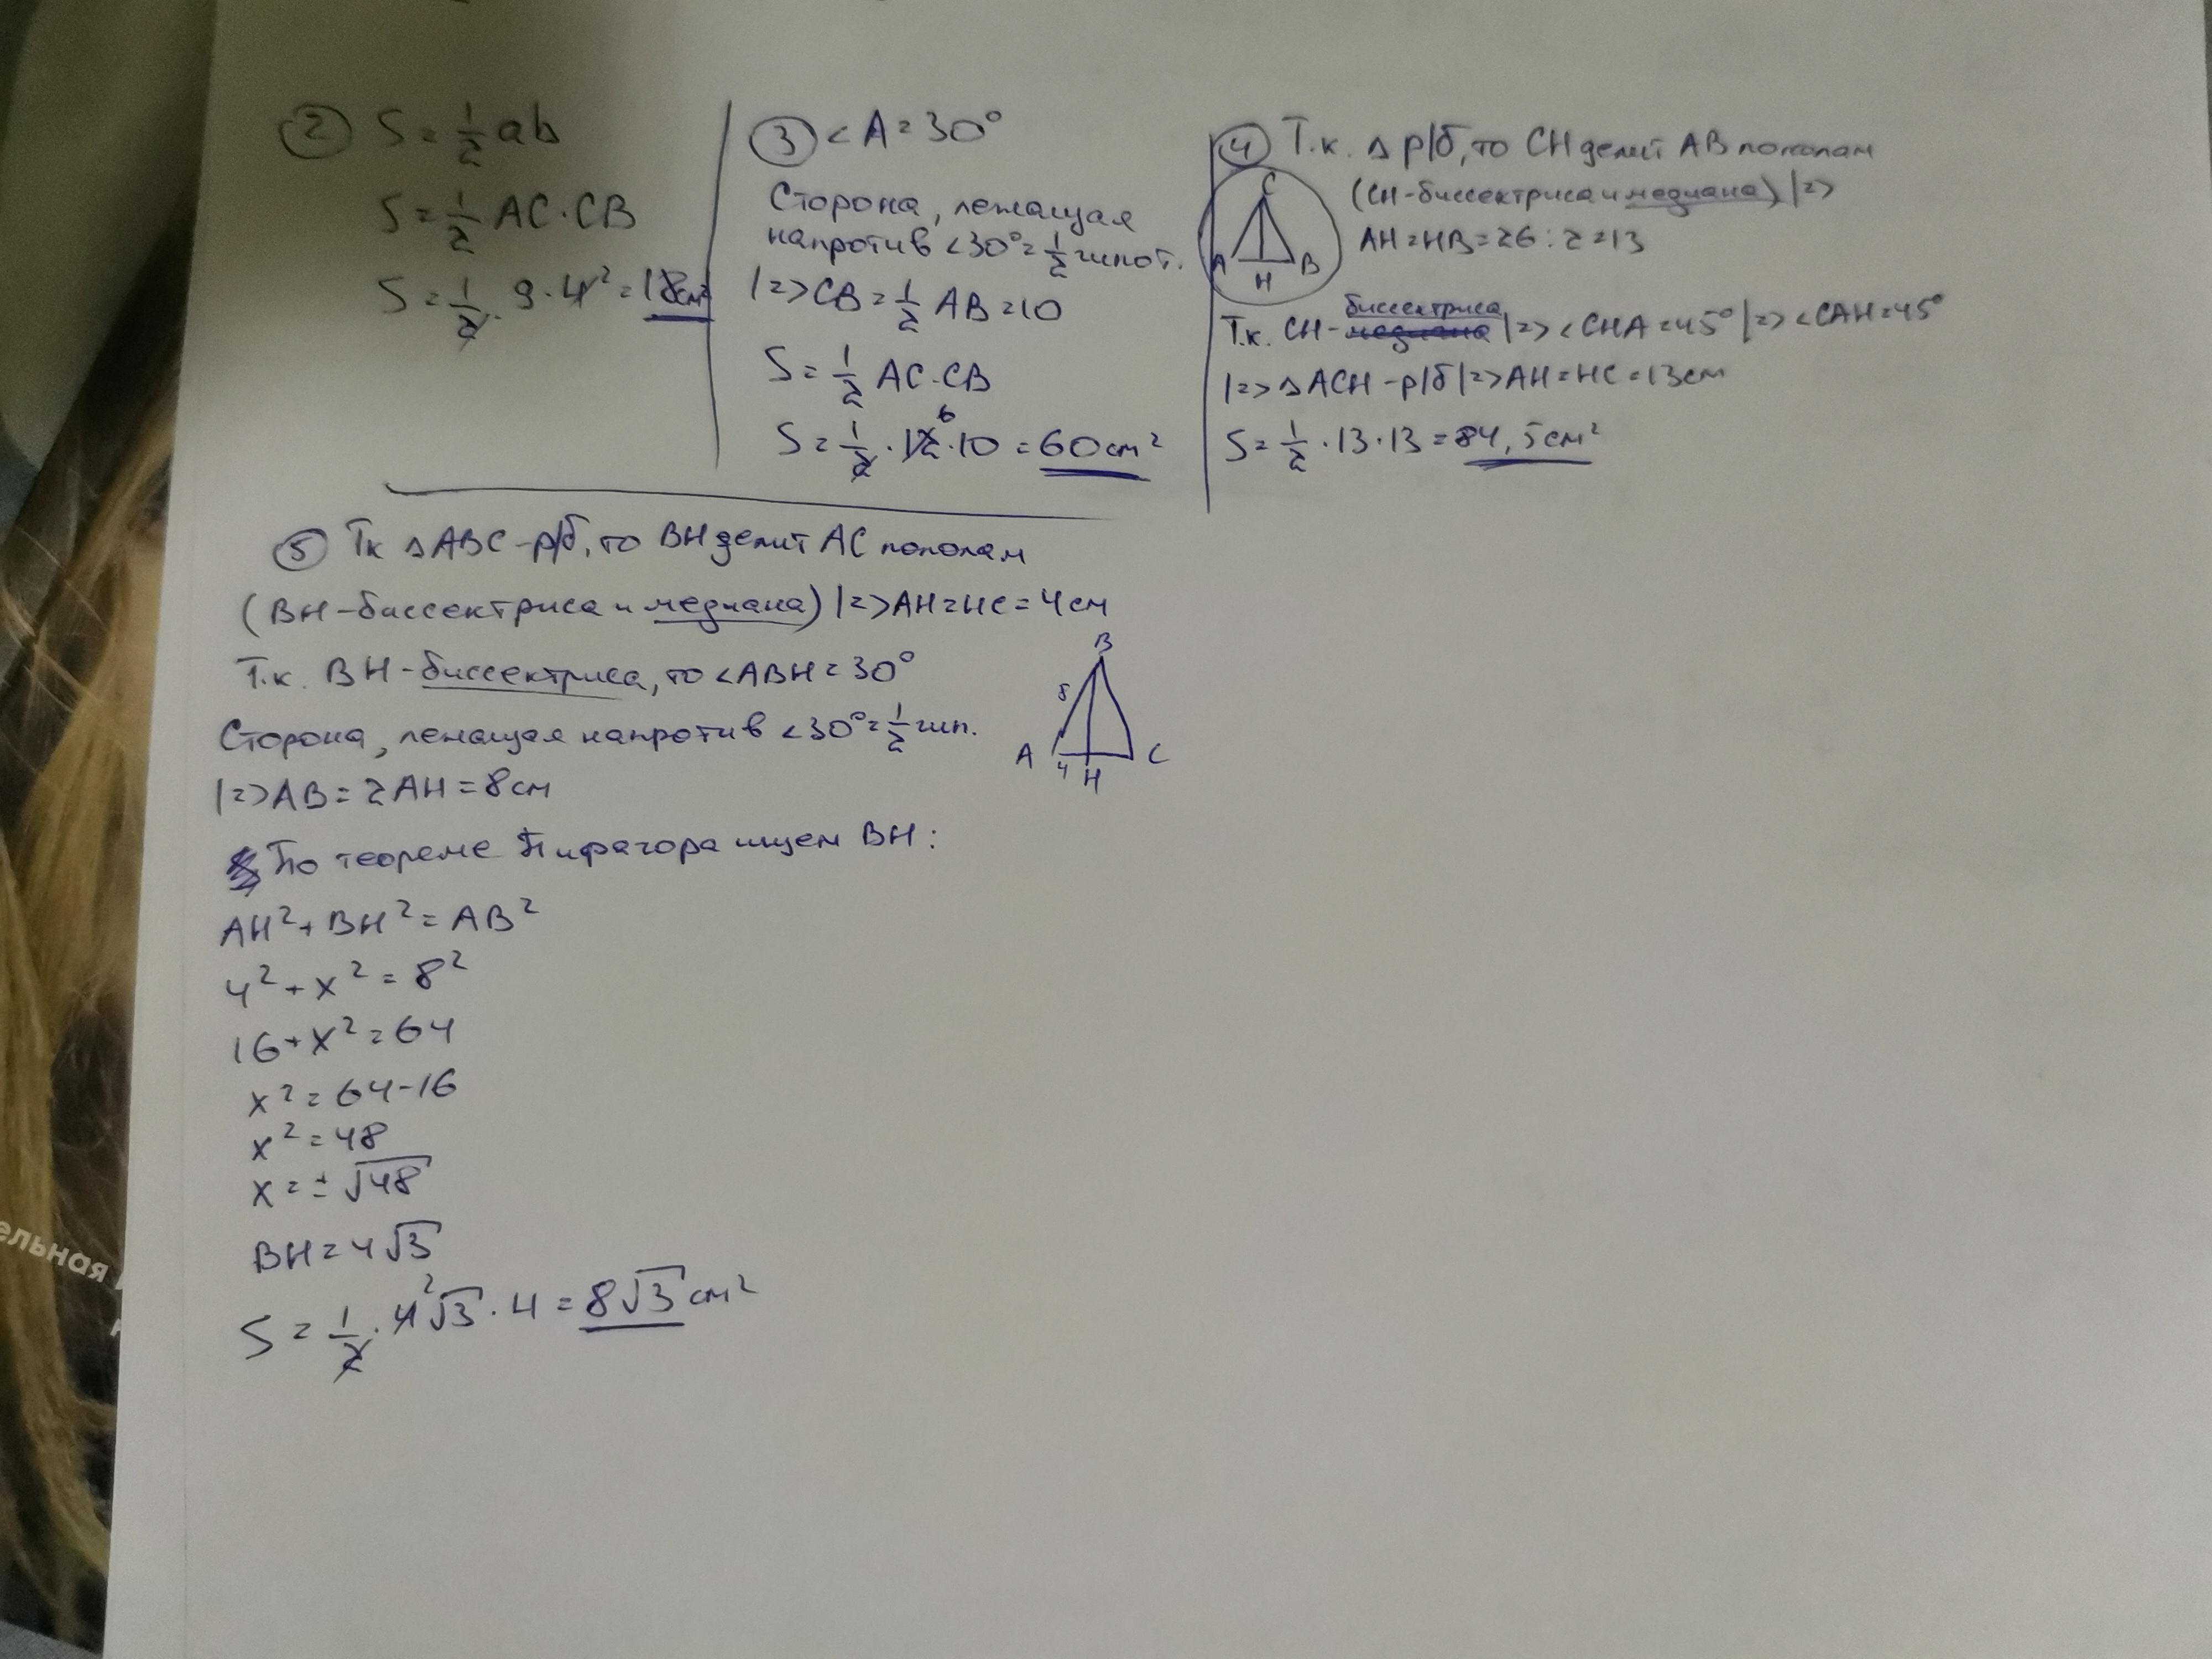 ② S = 1/2 ab
S = 1/2 AC · CB
S = 1/2 · 9 · 4² = 18см²
③ <A = 30°
Сторона, лежащая
напротив <30° = 1/2 гипот.
|=> CB = 1/2 AB = 10
S = 1/2 AC · CB
6
S = 1/2 · 12 · 10 = 60 см²
④ Т.к. △ р/б, то CH делит AB пополам
(CH - биссектриса и медиана) |=>
AH = HB = 26 : 2 = 13
C
A H B
биссектриса
Т.к. CH - медиана |=> <CHA = 45° |=> <CAH = 45°
|=> △ACH - р/б |=> AH = HC = 13 см
S = 1/2 · 13 · 13 = 84,5 см²
⑤ Тк △ABC - р/б, то BH делит AC пополам
(BH - биссектриса и медиана) |=> AH = HC = 4 см
Т.к. BH - биссектриса, то <ABH = 30°
Сторона, лежащая напротив <30° = 1/2 гип.
|=> AB = 2AH = 8 см
B
8
A 4 H C
По теореме Пифагора ищем BH:
AH² + BH² = AB²
4² + x² = 8²
16 + x² = 64
x² = 64 - 16
x² = 48
x = ± √48
BH = 4√3
2
S = 1/2 · 4√3 · 4 = 8√3 см²
ельная